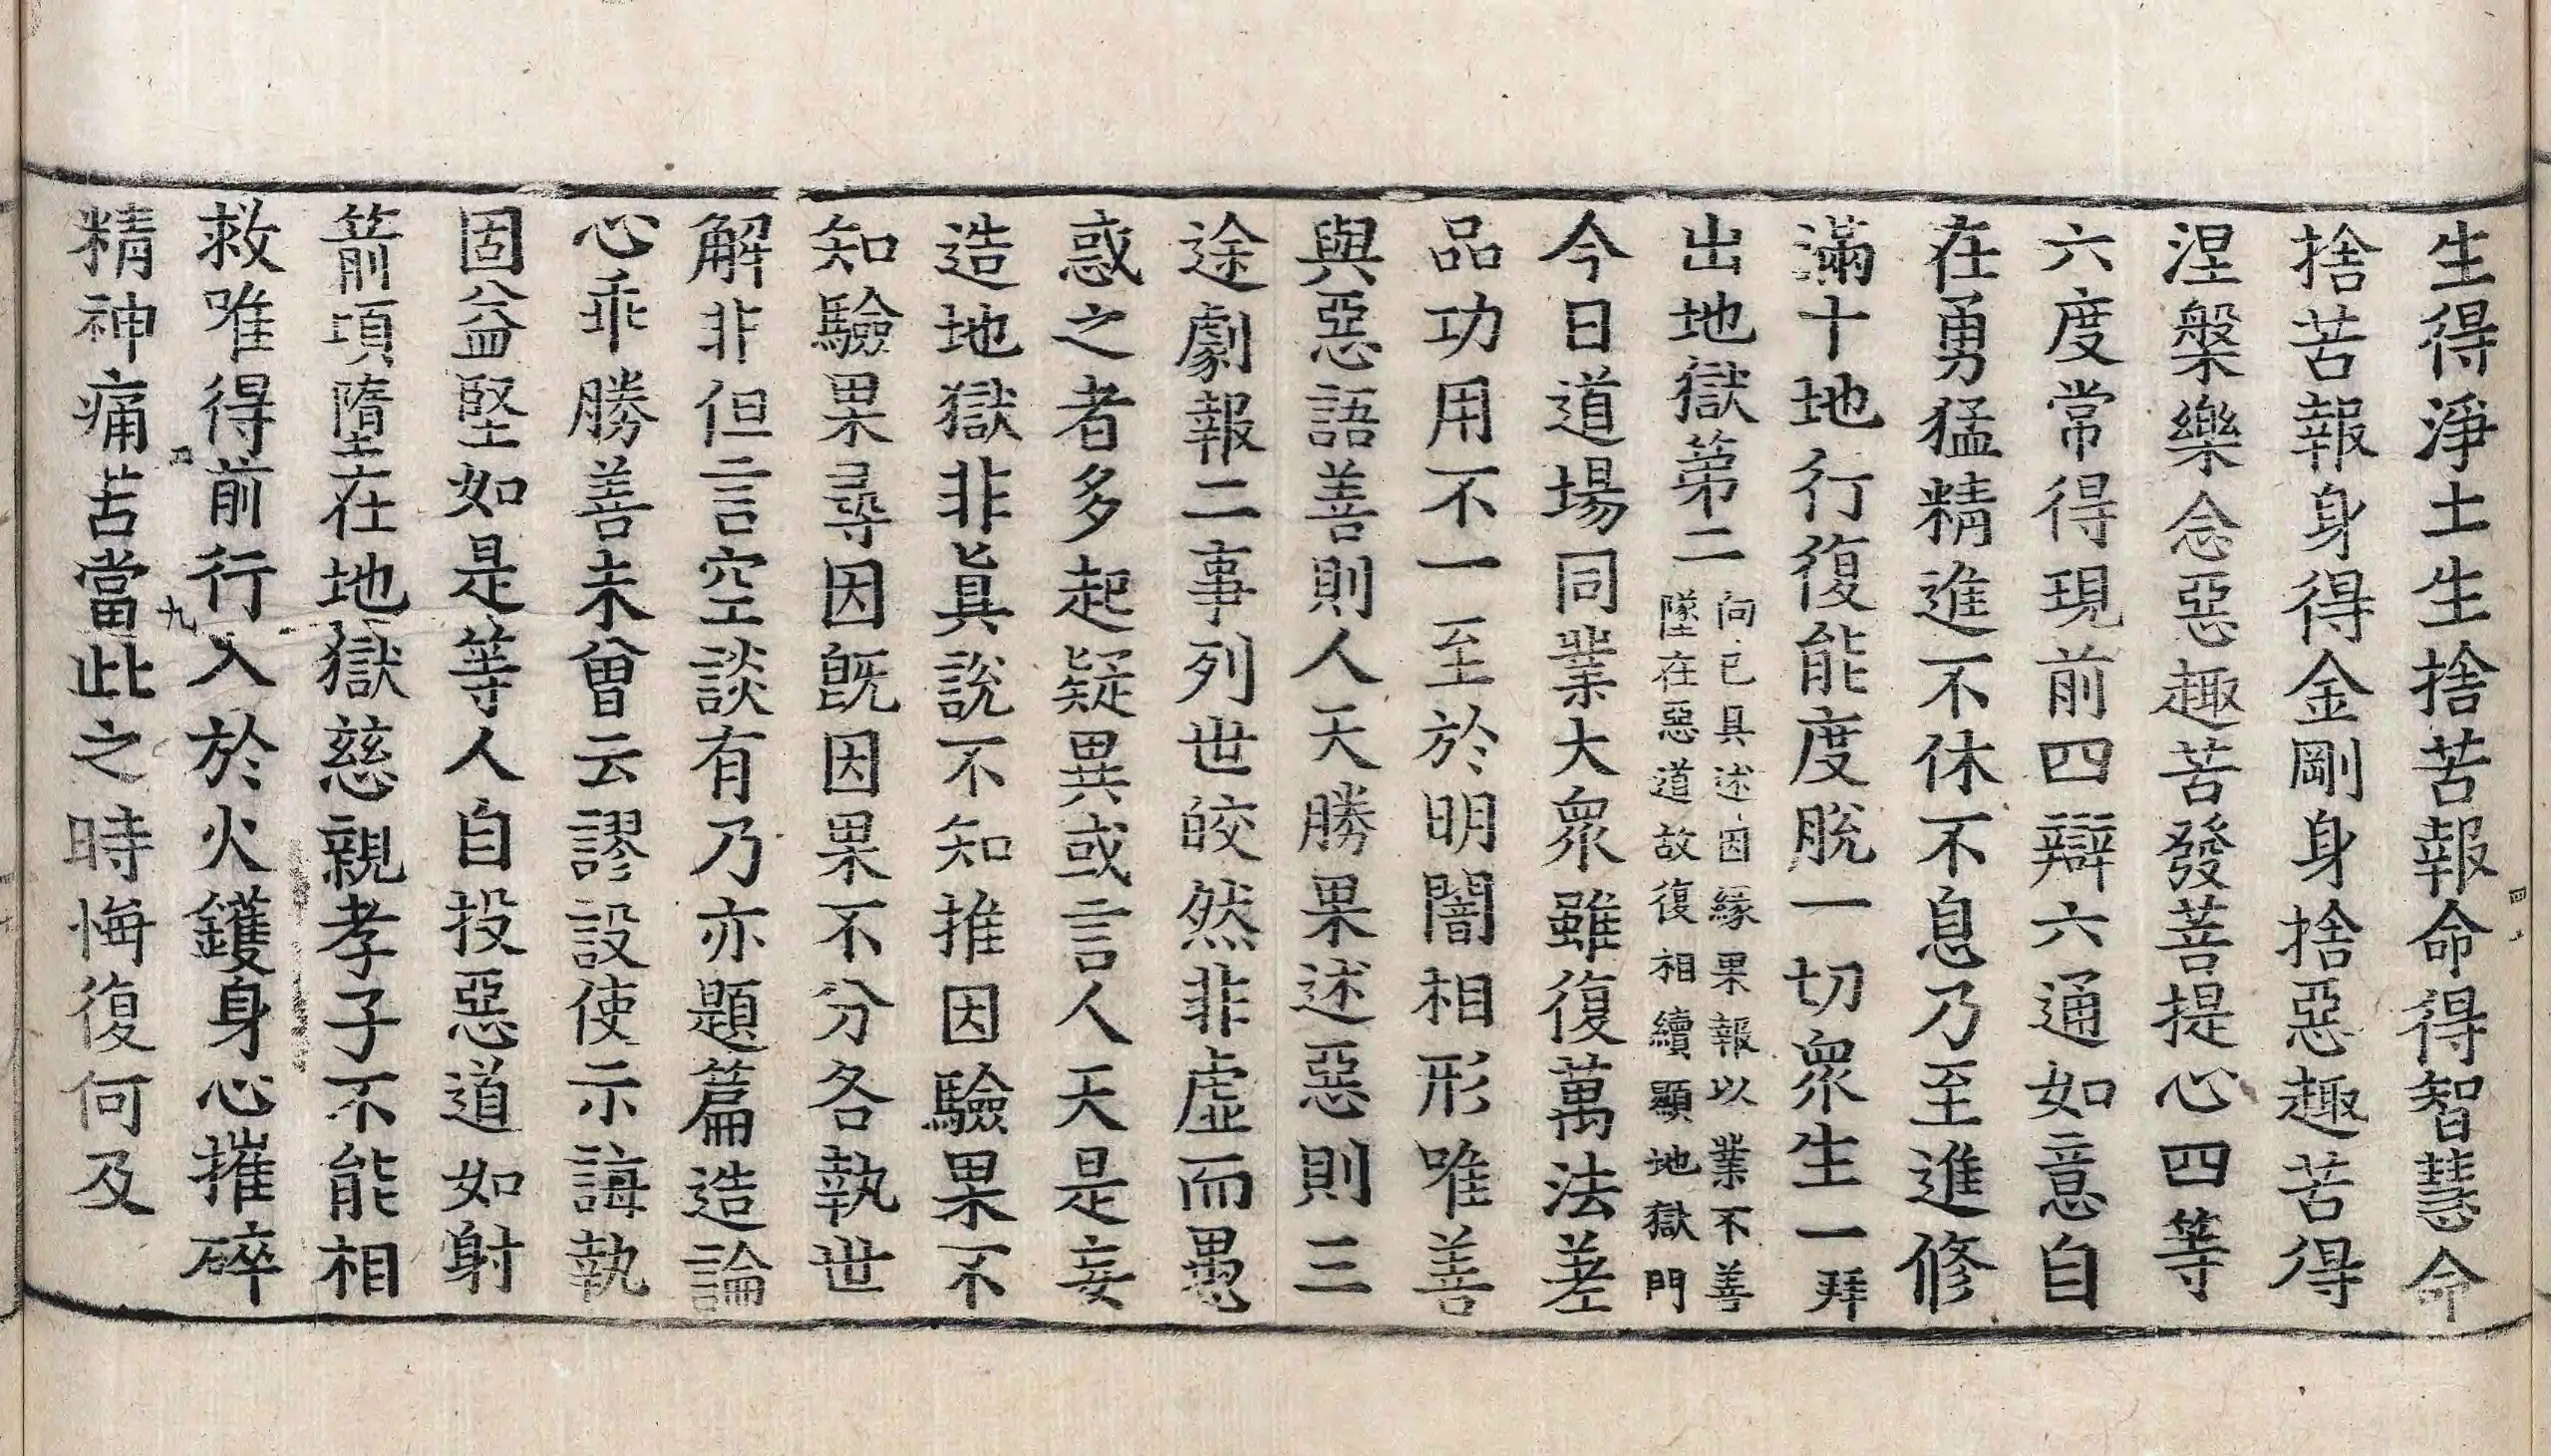 生得淨土生捨苦報命得智慧命
捨苦報身得金剛身捨惡趣苦得
涅槃樂念惡趣苦發菩提心四等
六度常得現前四辯六通如意自
在勇猛精進不休不息乃至進修
滿十地行復能度脫一切衆生一拜
出地獄第二
向已具述因緣果報以業不善
墜在惡道故復相續顯地獄門
今日道場同業大衆雖復萬法差
品功用不一至於明闇相形唯善
與惡語善則人天勝果述惡則三
途劇報二事列世皎然非虛而愚
惑之者多起疑異或言人天是妄
造地獄非眞說不知推因驗果不
知驗果尋因旣因果不分各執世
解非但言空談有乃亦題篇造論
心乖勝善未曾云謬設使示誨執
固益堅如是等人自投惡道如射
箭頃墮在地獄慈親孝子不能相
救唯得前行入於火鑊身心摧碎
精神痛苦當此之時悔復何及
九